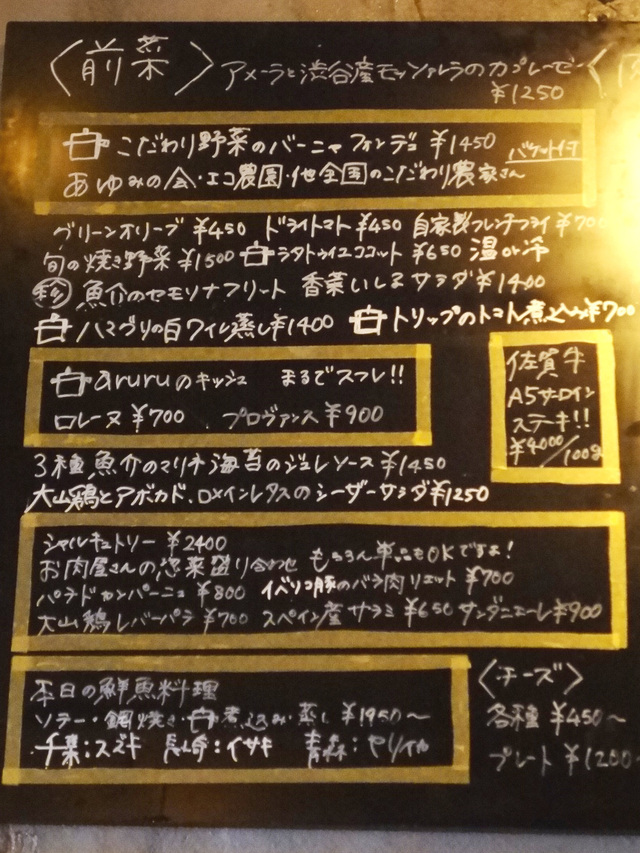 〈前菜〉 アメーラと渋谷産モッツァレラのカプレーゼ
¥1250
こだわり野菜のバーニャフォンデュ ¥1450 バケット付
あゆみの会・エコ農園・他全国のこだわり農家さん
グリーンオリーブ ¥450 ドライトマト ¥450 自家製フレンチフライ ¥700
旬の焼き野菜 ¥1500 ラタトゥイユココット ¥650 温or冷
珍 魚介のセモリナフリート 香菜いしるサラダ ¥1400
ハマグリの白ワイン蒸し ¥1400 トリップのトマト煮込み ¥700
aruruのキッシュ まるでスフレ!!
ロレーヌ ¥700 プロヴァンス ¥900
佐賀牛
A5サーロイン
ステーキ!!
¥4000/100g
3種魚介のマリネ海苔のジュレソース ¥1450
大山鶏とアボカド、ロメインレタスのシーザーサラダ ¥1250
シャルキュトリー ¥2400
お肉屋さんの惣菜盛り合わせ もちろん単品もOKですよ!
パテドカンパーニュ ¥800 イベリコ豚のバラ肉リエット ¥700
大山鶏レバーパテ ¥700 スペイン産サラミ ¥650 サンダニエーレ ¥900
本日の鮮魚料理
ソテー・鍋焼き・煮込み・蒸し ¥1950〜
千葉:スズキ 長崎:イサキ 青森:ヤリイカ
〈チーズ〉
各種 ¥450〜
プレート ¥1200〜